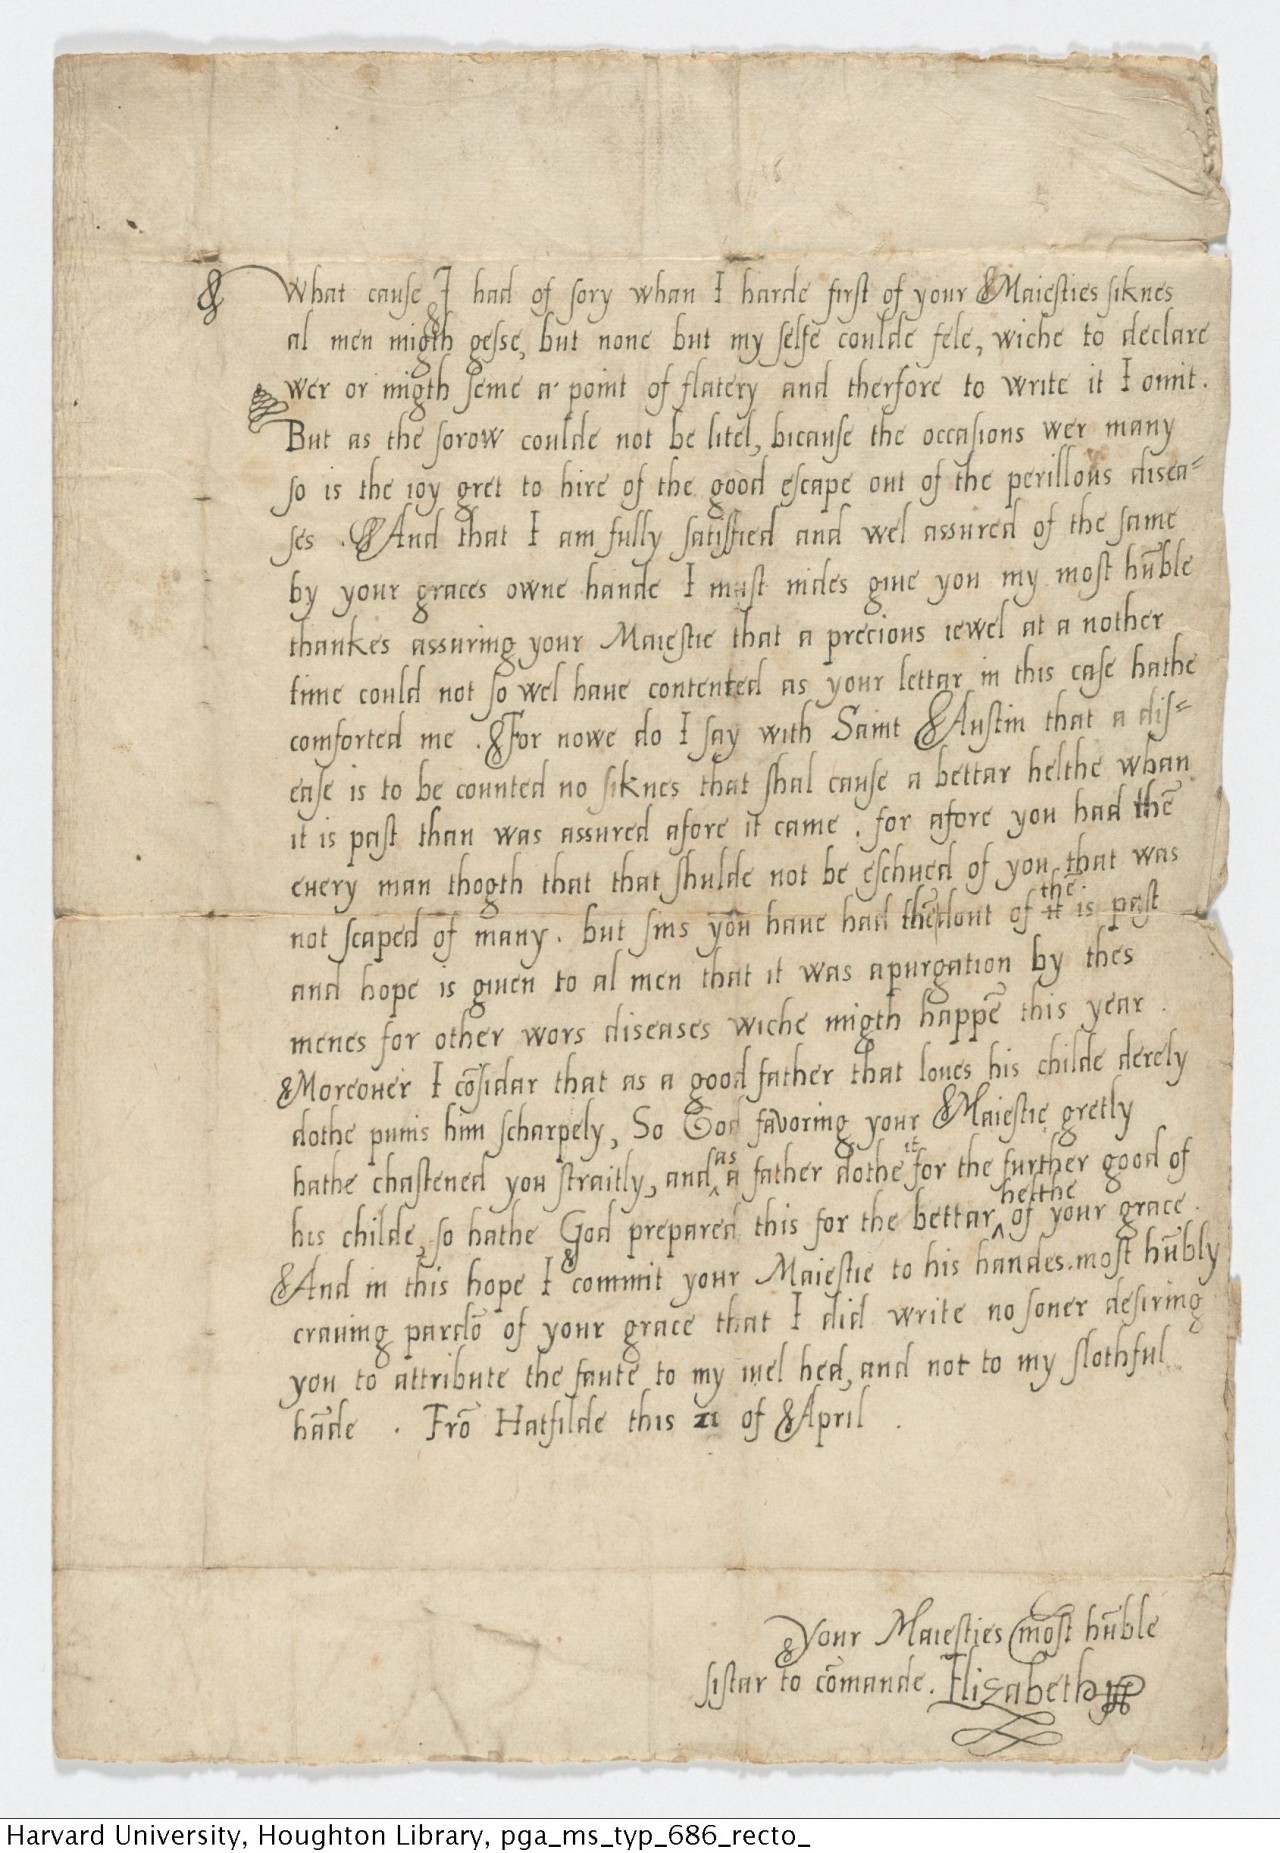 What cause I had of sory whan I harde first of your Maiesties siknes
al men migth gesse, but none but my selfe coulde fele, wiche to declare
wer or migth seme a point of flatery and therfore to write it I omit.
But as the sorow coulde not be litel, bicause the occasions wer many
so is the ioy gret to hire of the good escape out of the perillous disea=
ses . And that I am fully satisfied and wel assured of the same
by your graces owne hande I must nides giue you my most hūble
thankes assuring your Maiestie that a precious iewel at a nother
time could not so wel haue contented as your lettar in this case hathe
comforted me . For nowe do I say with Saint Austin that a dis=
ease is to be counted no siknes that shal cause a bettar helthe whan
it is past than was assured afore it came . for afore you had thē
euery man thogth that that shulde not be eschued of you that was
not scaped of many. but sins you haue had thē dout of thē is past
and hope is giuen to al men that it was a purgation by thes
menes for other wors diseases wiche migth happē this year .
Moreouer I cōsidar that as a good father that loues his childe derely
dothe punis him scharpely, So God favoring your Maiestie gretly
hathe chastened you straitly, and as a father dothe it for the further good of
his childe, so hathe God prepared this for the bettar helthe of your grace .
And in this hope I commit your Maiestie to his handes. most hūbly
crauing pardō of your grace that I did write no soner desiring
you to attribute the faute to my iuel hed, and not to my slothful
hāde . Frō Hatfilde this 21 of April .
Your Maiesties most hūble
sistar to cōmande. Elizabeth
Harvard University, Houghton Library, pga_ms_typ_686_recto_